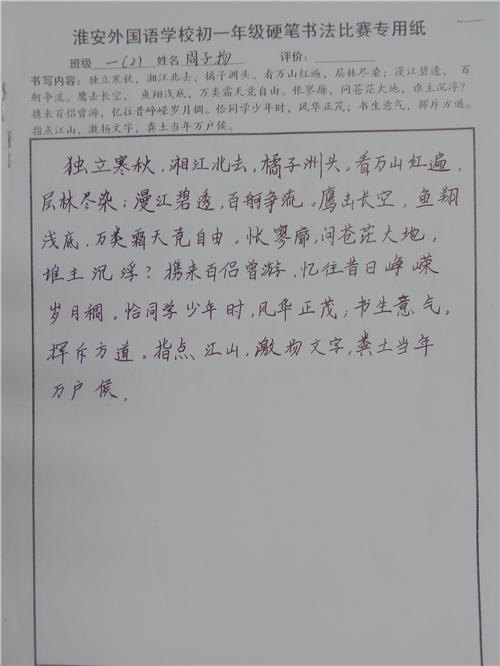 淮安外国语学校初一年级硬笔书法比赛专用纸
班级 一(2) 姓名 周子扬 评价:
书写内容:独立寒秋,湘江北去,橘子洲头。看万山红遍,层林尽染;漫江碧透,百
舸争流。鹰击长空,鱼翔浅底,万类霜天竞自由。怅寥廓,问苍茫大地,谁主沉浮?
携来百侣曾游,忆往昔峥嵘岁月稠。恰同学少年时,风华正茂;书生意气,挥斥方遒。
指点江山,激扬文字,粪土当年万户侯。
独立寒秋,湘江北去,橘子洲头。看万山红遍,
层林尽染;漫江碧透,百舸争流。鹰击长空,鱼翔
浅底,万类霜天竞自由。怅寥廓,问苍茫大地,
谁主沉浮?携来百侣曾游,忆往昔日峥嵘
岁月稠。恰同学少年时,风华正茂;书生意气,
挥斥方遒。指点江山,激扬文字,粪土当年
万户侯,